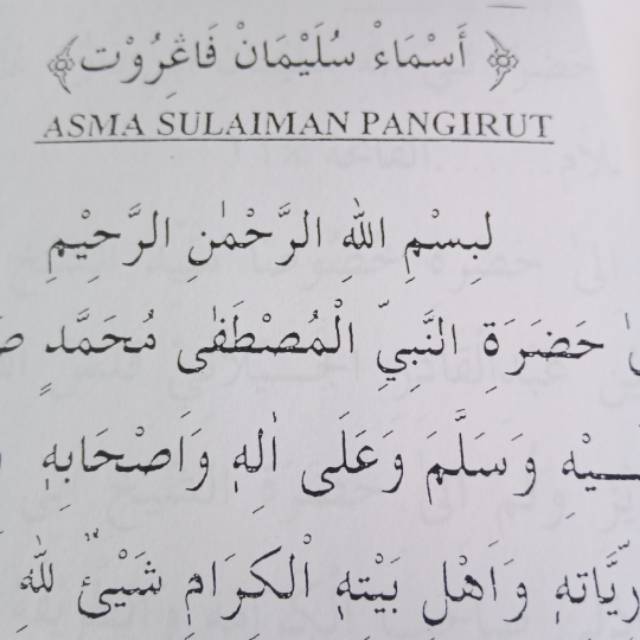 ﴿ أَسْمَاءْ سُلَيْمَانْ فَاڠِرُوْت ﴾
ASMA SULAIMAN PANGIRUT
لبِسْمِ اللهِ الرَّحْمٰنِ الرَّحِيْمِ
حَضَرَةِ النَّبِيِّ الْمُصْطَفٰى مُحَمَّدٍ
وَسَلَّمَ وَعَلَى اٰلِهٖ وَاَصْحَابِهٖ
وَاَهْلِ بَيْتِهٖ الْكِرَامِ شَيْئٌ لِلّٰهِ